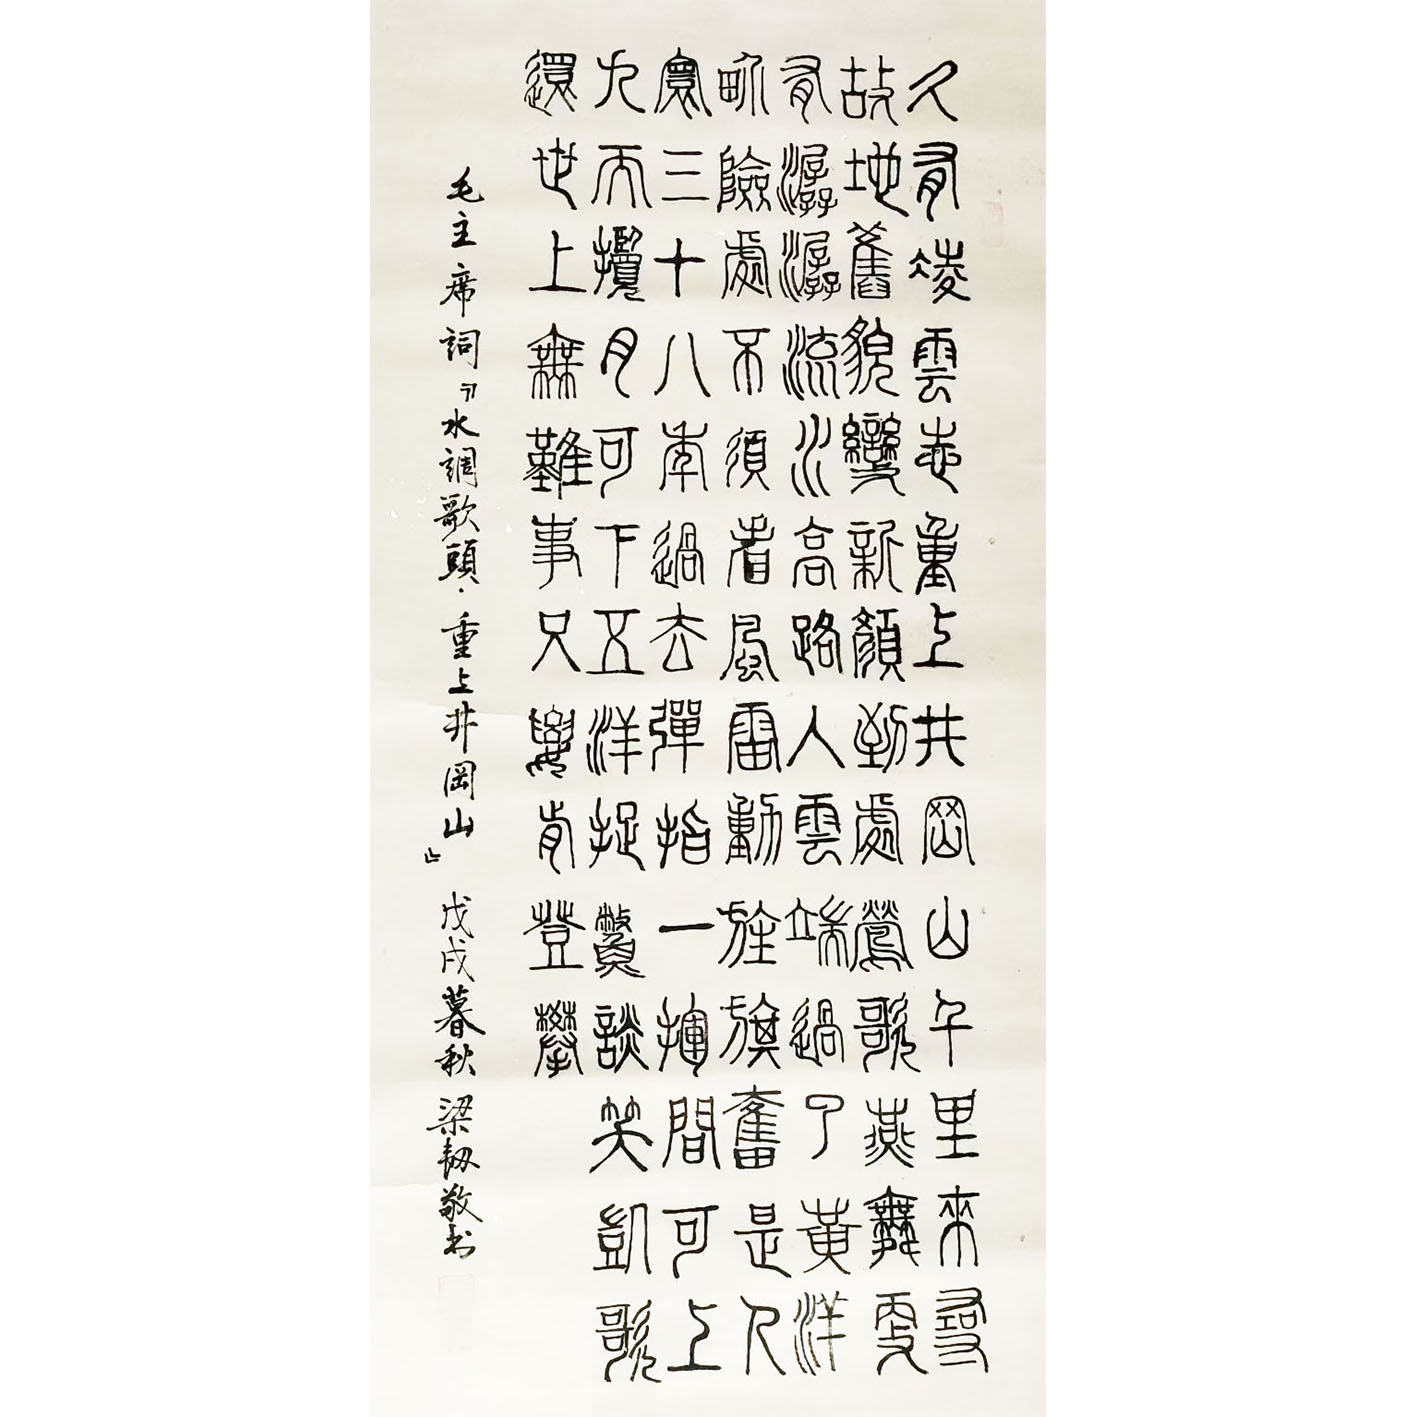 久有凌雲志重上井岡山千里來尋
故地舊貌變新顏到處鶯歌燕舞更
有潺潺流水高路入雲端過了黃洋
界險處不須看風雷動旌旗奮是人
寰三十八年過去彈指一揮間可上
九天攬月可下五洋捉鱉談笑凱歌
還世上無難事只要肯登攀
毛主席詞《水調歌頭·重上井岡山》戊戌暮秋梁韌敬书